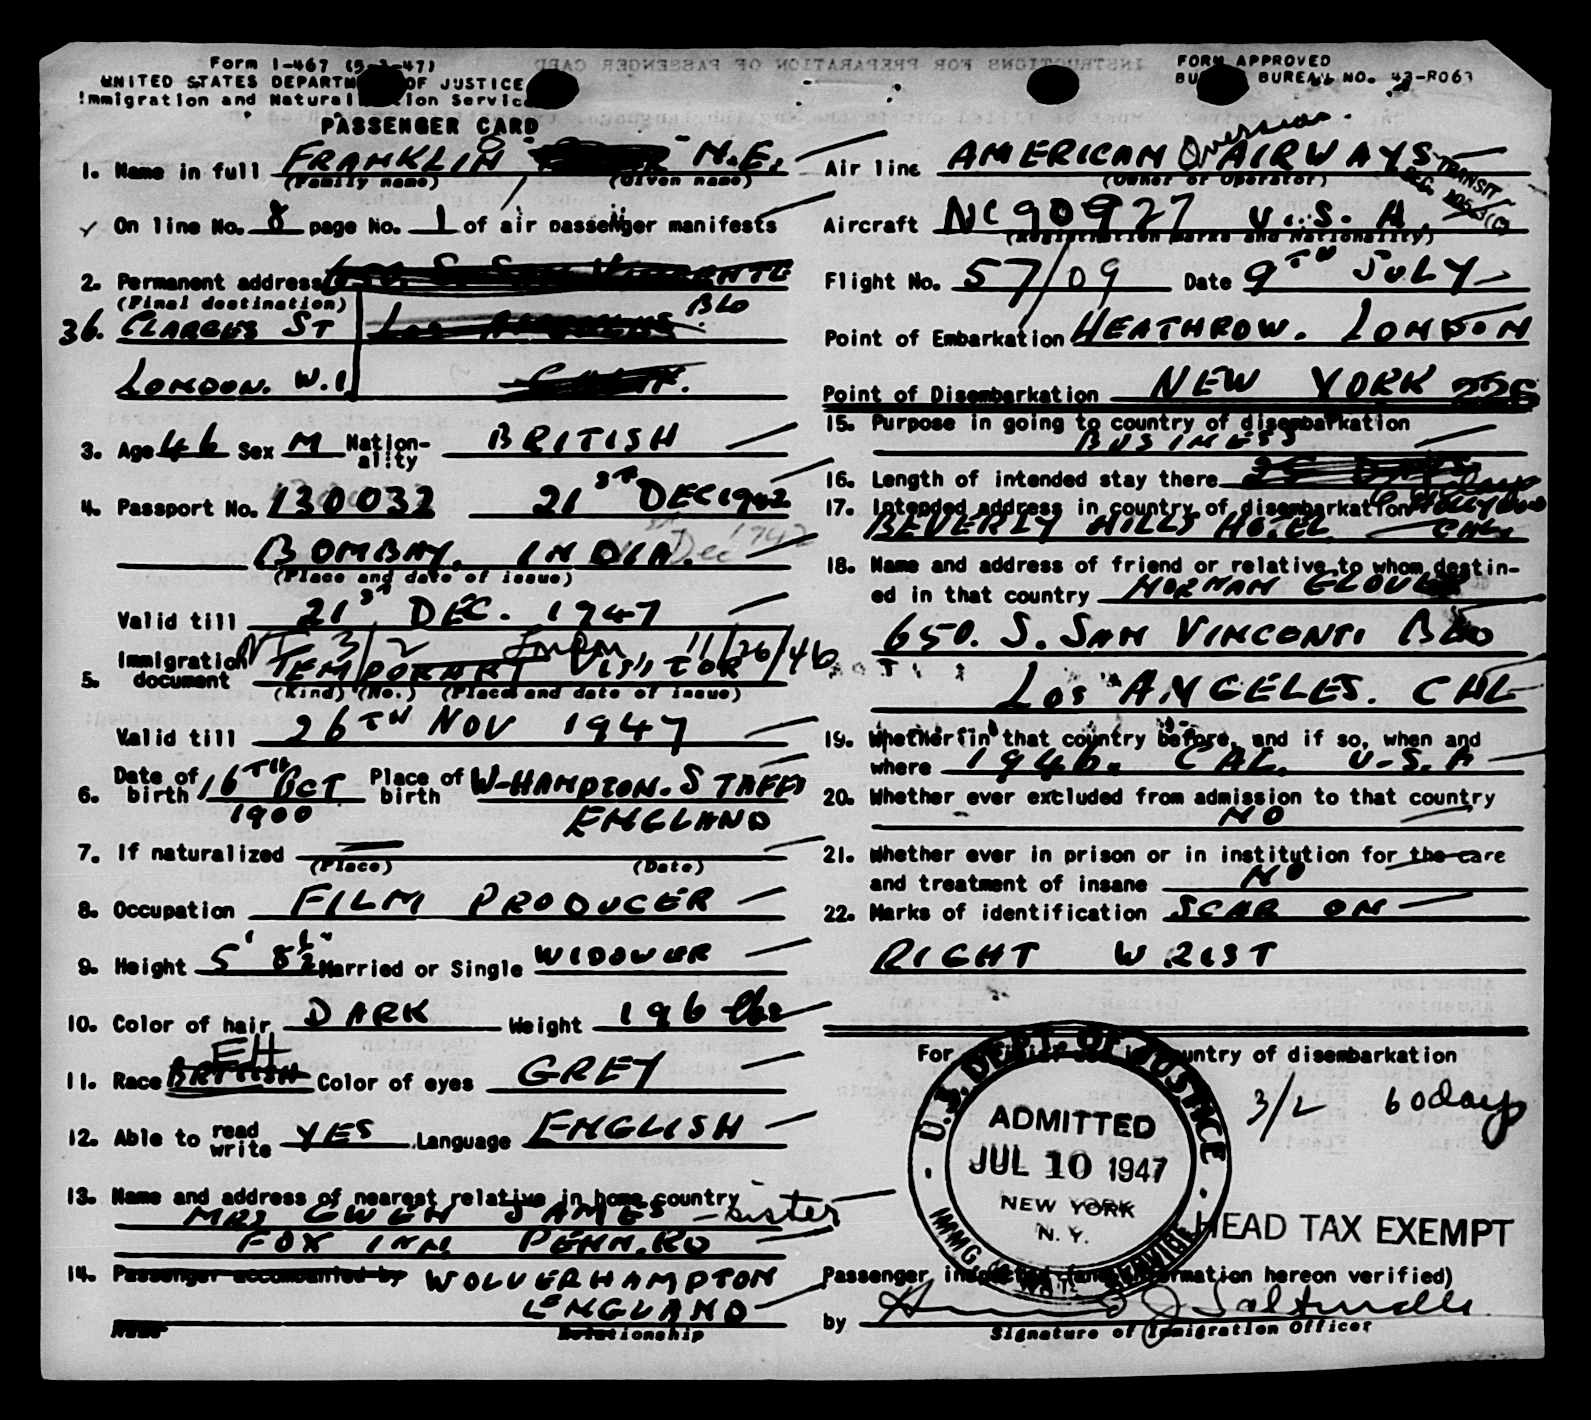 Form I-467 (5-1-47)
UNITED STATES DEPARTMENT OF JUSTICE
Immigration and Naturalization Service
FORM APPROVED
BUREAU NO. 43-R063
PASSENGER CARD
1. Name in full FRANKLIN N.E.
(Family name) (Given name)
On line No. 8 page No. 1 of air passenger manifests
2. Permanent address 650. S. SAN
(Final destination)
36. CLARGES ST LOS BLD
LONDON. W.1. CALIF.
3. Age 46 Sex M Nationality BRITISH
4. Passport No. 130032 21ST DEC 1942
BOMBAY. INDIA. Dec 1942
(Place and date of issue)
Valid till 21ST DEC. 1947
5. Immigration document TEMPORARY VISITOR 3/2 11/26/46
(Kind) (No.) (Place and date of issue)
Valid till 26TH NOV 1947
6. Date of birth 16TH OCT 1900 Place of birth W-HAMPTON. STAFFS
ENGLAND
7. If naturalized
(Place) (Date)
8. Occupation FILM PRODUCER
9. Height 5' 8½" Married or Single WIDOWER
10. Color of hair DARK Weight 196 lbs
11. Race BRITISH EH Color of eyes GREY
12. Able to read write YES Language ENGLISH
13. Name and address of nearest relative in home country
MRS GWEN JAMES - sister
FOX INN. PENN. RD
14. Passenger accompanied by WOLVERHAMPTON
ENGLAND
Name Relationship
Air line AMERICAN Overseas AIRWAYS
(Owner or Operator)
TRANSIT
Aircraft NC90927 U.S.A.
(Registration marks and Nationality)
Flight No. 57/09 Date 9TH JULY
Point of Embarkation HEATHROW. LONDON
Point of Disembarkation NEW YORK
15. Purpose in going to country of disembarkation
BUSINESS
16. Length of intended stay there days
17. Intended address in country of disembarkation HOLLYWOOD
BEVERLY HILLS HOTEL CAL.
18. Name and address of friend or relative to whom destined in that country NORMAN
650. S. SAN VINCONTI BLD
LOS ANGELES. CAL
19. Whether in that country before, and if so, when and
where 1946. CAL. U.S.A
20. Whether ever excluded from admission to that country
NO
21. Whether ever in prison or in institution for the care
and treatment of insane NO
22. Marks of identification SCAR ON
RIGHT WRIST
For official use in country of disembarkation
3/2 60 days
U.S. DEPT. OF JUSTICE
ADMITTED
JUL 10 1947
NEW YORK
N. Y.
IMMG. SERVICE
HEAD TAX EXEMPT
Passenger inspected (and information hereon verified)
by
Signature of Immigration Officer